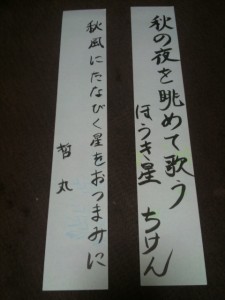 秋の夜を眺めて歌う
ほうき星 ちけん
秋風にたなびく星をおつまみに
哲丸